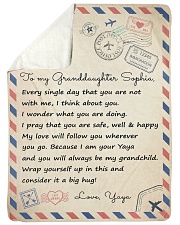 To my Granddaughter Sophia,
Every single day that you are not
with me, I think about you.
I wonder what you are doing.
I pray that you are safe, well & happy
My love will follow you wherever
you go. Because I am your Yaya
and you will always be my grandchild.
Wrap yourself up in this and
consider it a big hug!
Love, Yaya